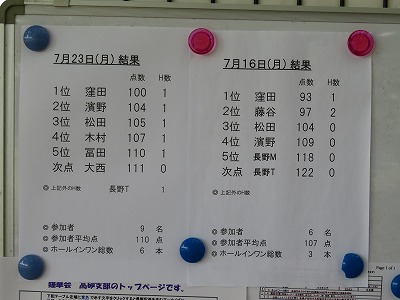 7月23日(月) 結果
点数 H数
1位 窪田 100 1
2位 濱野 104 1
3位 松田 105 1
4位 木村 107 1
5位 冨田 110 1
次点 大西 111 0
◎ 上記外のH数 長野T 1
◎ 参加者 9 名
◎ 参加者平均点 110 点
◎ ホールインワン総数 6 本
7月16日(月) 結果
点数 H数
1位 窪田 93 1
2位 藤谷 97 2
3位 松田 104 0
4位 濱野 109 0
5位 長野M 118 0
次点 長野T 122 0
◎ 上記外のH数
◎ 参加者 6 名
◎ 参加者平均点 107 点
◎ ホールインワン総数 3 本
支部のトップページです。
Page 1 of 1